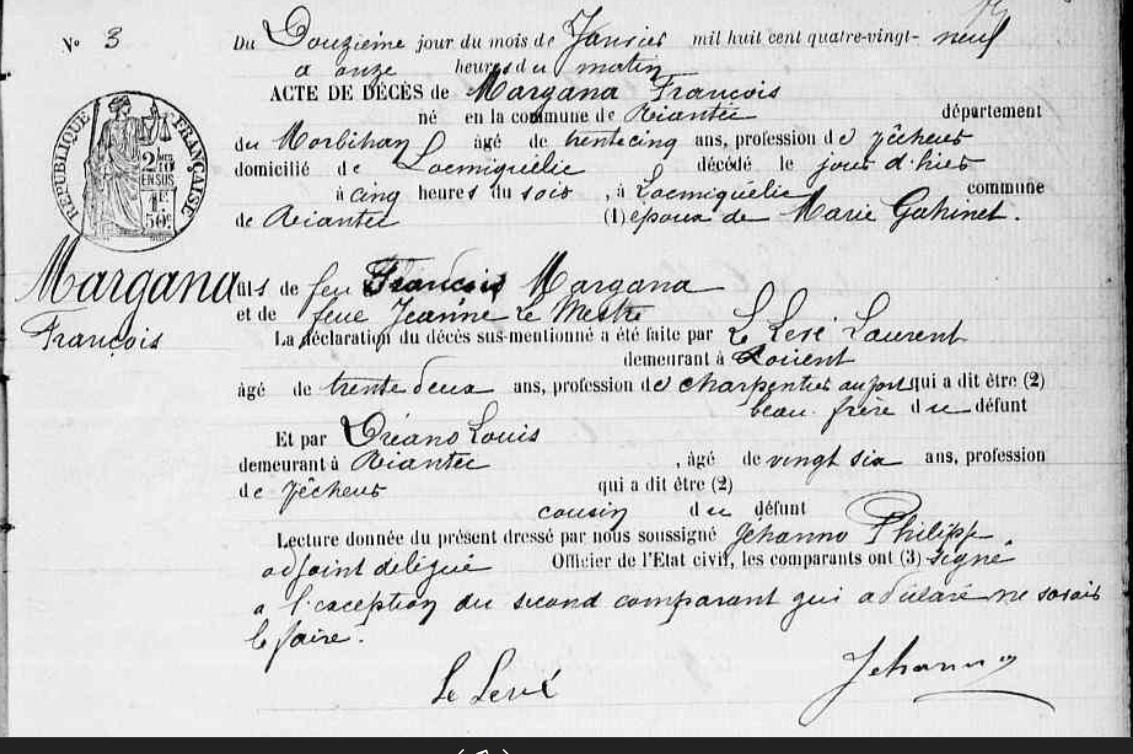 N° 3
Du Douzième jour du mois de Janvier mil huit cent quatre-vingt- neuf
a onze heures du matin
ACTE DE DÉCÈS de Margana Francois
né en la commune de Riantec département
du Morbihan âgé de trente cinq ans, profession de pêcheur
domicilié de Locmiquélic décédé le jour d'hier
à cinq heures du soir, à Locmiquélic commune
de Riantec (1) époux de Marie Gahinet.
RÉPUBLIQUE FRANÇAISE
2/10 EN SUS
50c
Margana
François
fils de feu Francois Margana
et de feue Jeanne Le Mestre
La déclaration du décès sus-mentionné a été faite par Laurent
demeurant à Lorient
âgé de trente deux ans, profession de charpentier au port qui a dit être (2)
beau frère du défunt
Et par Dréano Louis
demeurant à Riantec, âgé de vingt six ans, profession
de pêcheur qui a dit être (2)
cousin du défunt
Lecture donnée du présent dressé par nous soussigné Jéhanno Philippe
adjoint délégué Officier de l'Etat civil, les comparants ont (3) signé
a l'exception du second comparant qui a déclaré ne savoir
le faire.
Jehanno